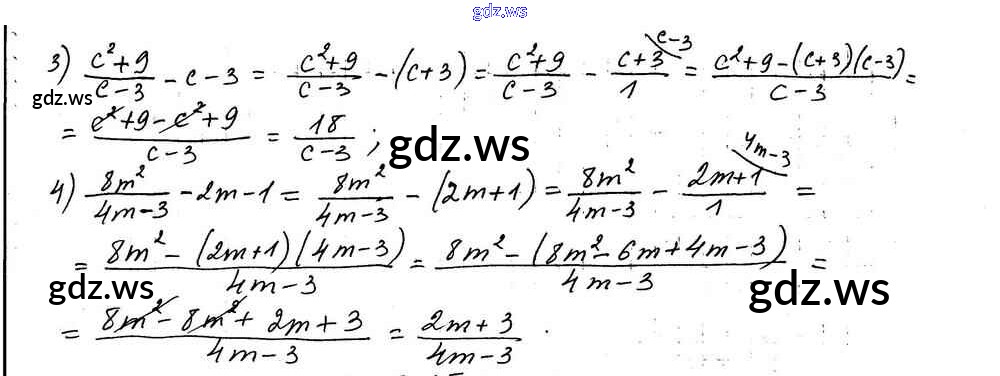 gdz.ws
3) (c²+9)/(c-3) - c - 3 = (c²+9)/(c-3) - (c+3) = (c²+9)/(c-3) - (c+3)/1 \c-3 = (c²+9-(c+3)(c-3))/(c-3) =
gdz.ws
= (c²+9-c²+9)/(c-3) = 18/(c-3) ;
gdz.ws
4) 8m²/(4m-3) - 2m - 1 = 8m²/(4m-3) - (2m+1) = 8m²/(4m-3) - (2m+1)/1 \4m-3 =
= (8m²-(2m+1)(4m-3))/(4m-3) = (8m²-(8m²-6m+4m-3))/(4m-3) =
gdz.ws
gdz.ws
= (8m²-8m²+2m+3)/(4m-3) = (2m+3)/(4m-3) .